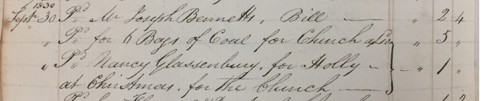 1830
Sept 30 Pd Mr Joseph Bennetts, Bill — " 2 " 4
" Pd for 6 Bags of Coal for Church " 5 "
" Pd Nancy Glassenbury, for Holly " 1 "
at Christmas, for the Church —